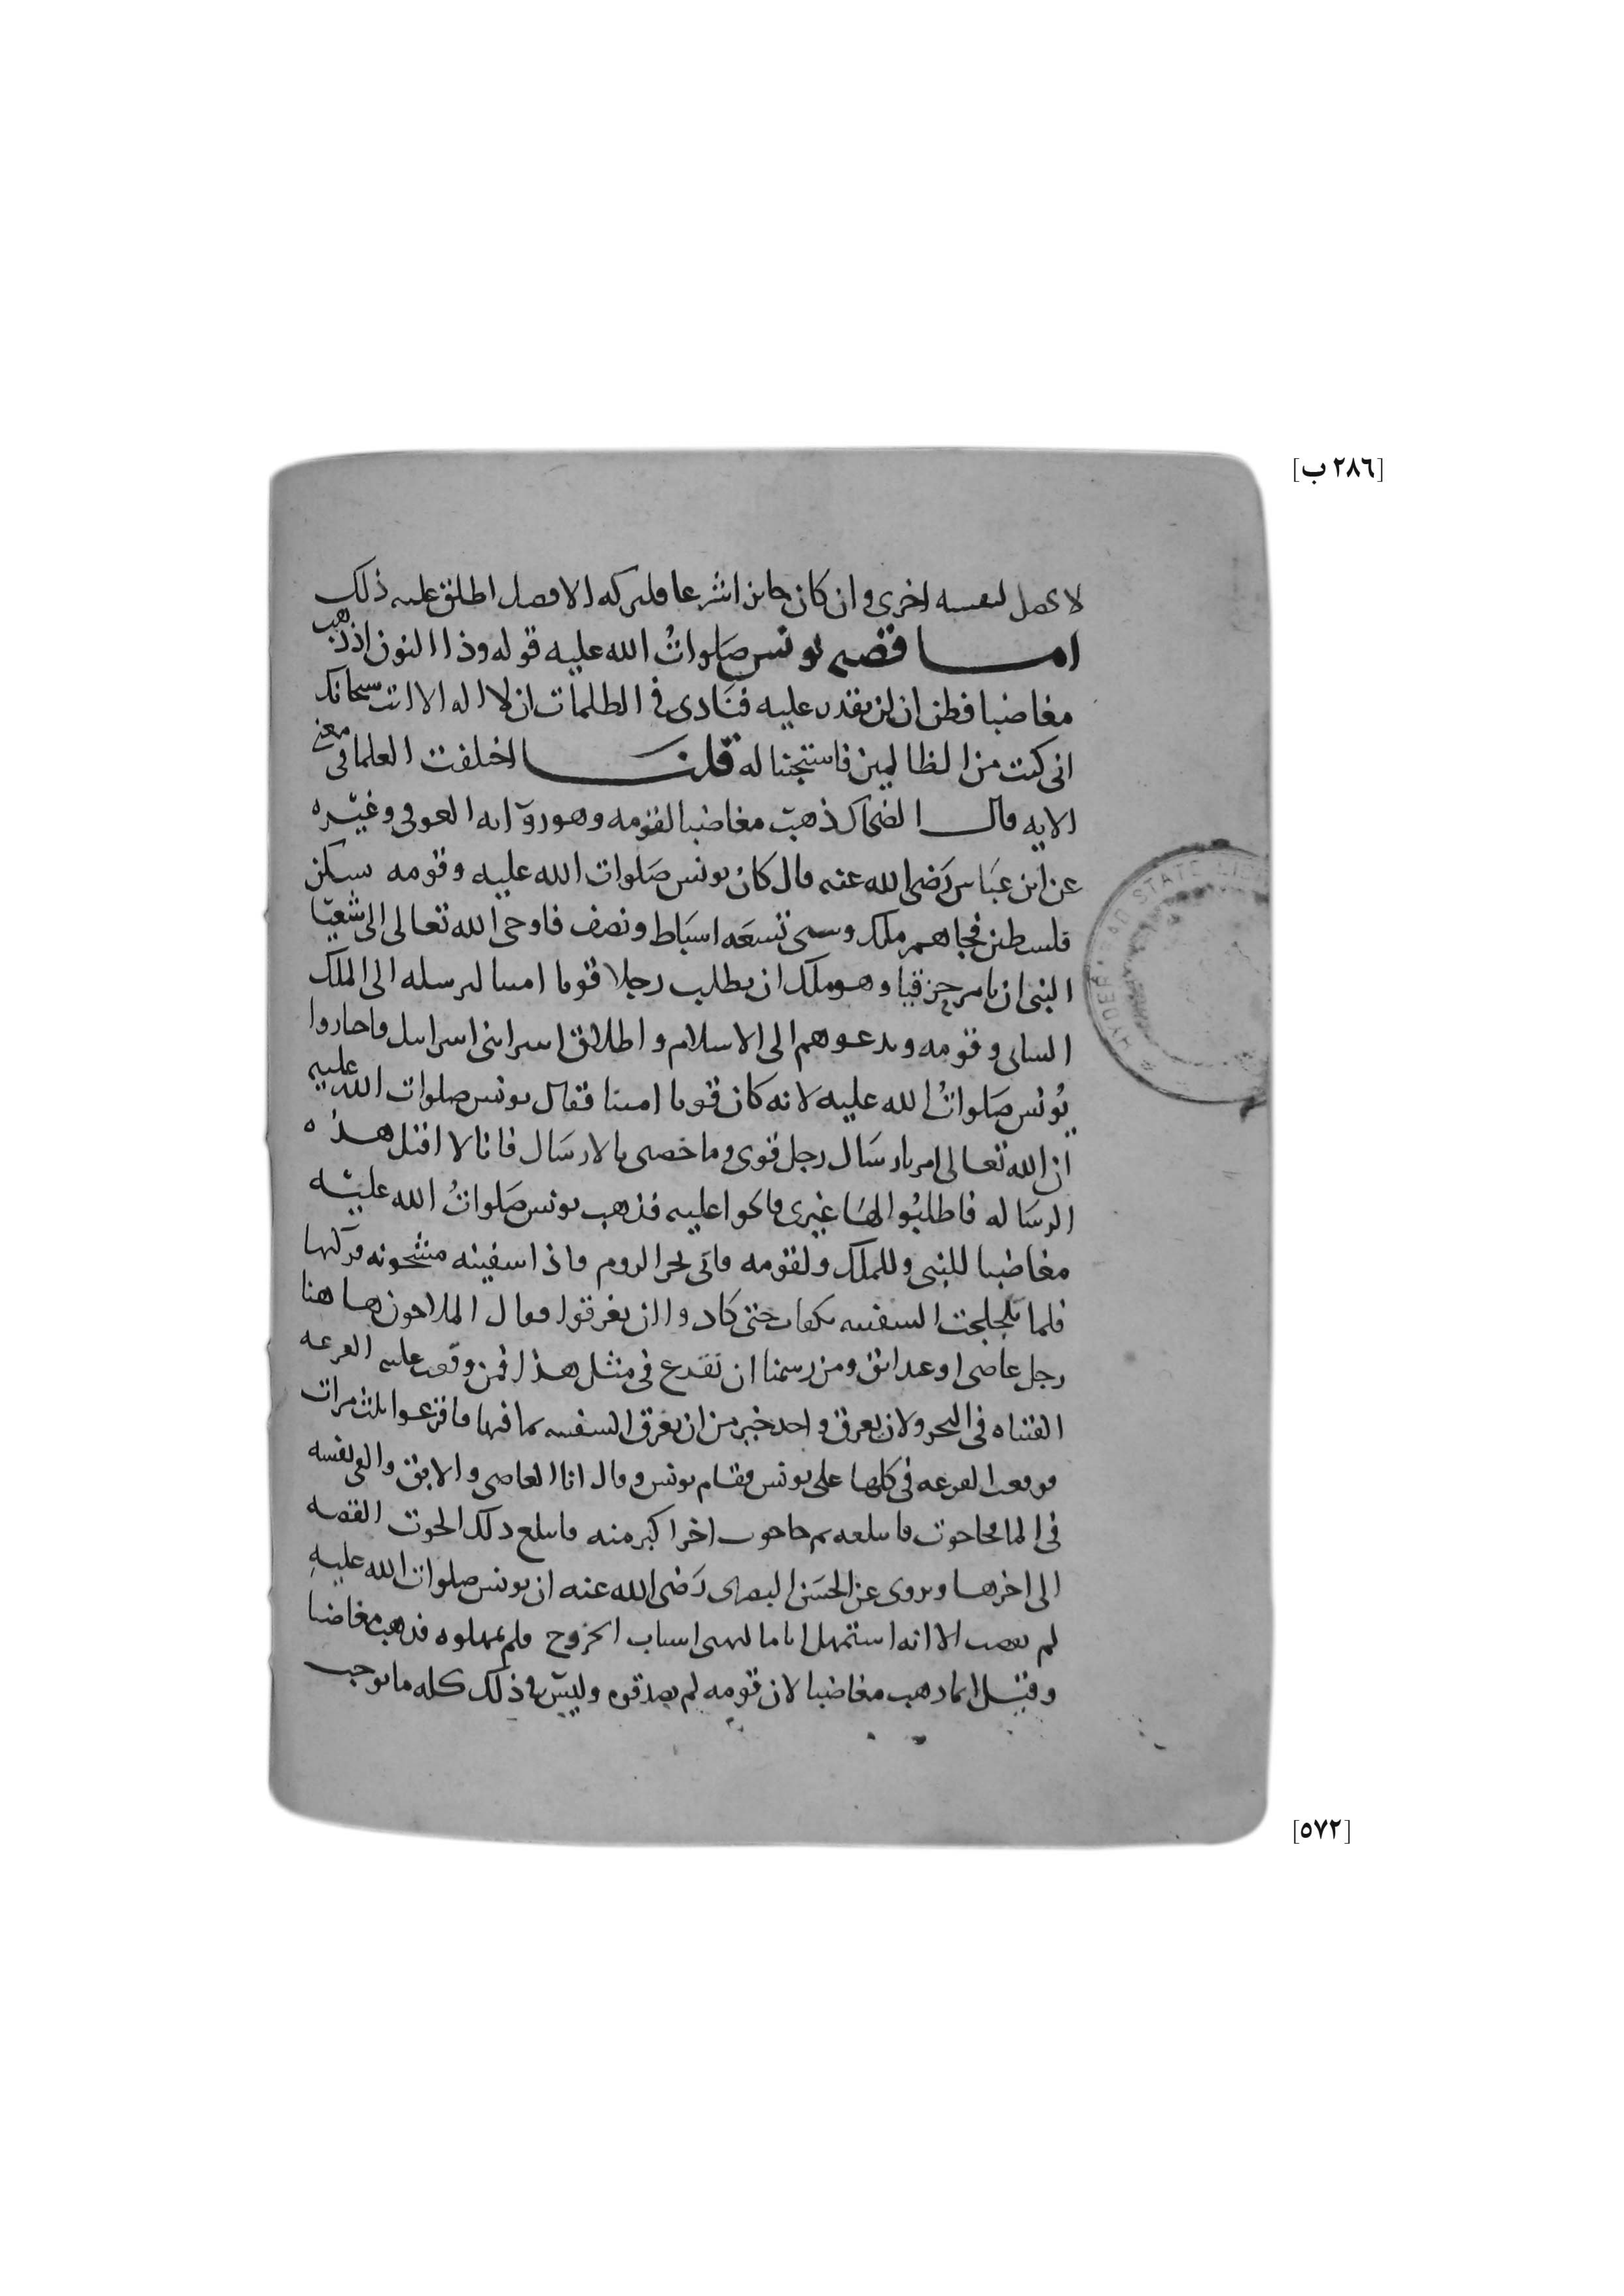 [٢٨٦ ب]
لا يحصل لنفسه اخرى وان كان جايزا شرعا فلتركه الافضل اطلق عليه ذلك
امـــا قصه يونس صلوات الله عليه قوله وذا النون اذ ذهب
مغاضبا فظن ان لن نقدر عليه فنادى في الظلمات ان لا اله الا انت سبحانك
اني كنت من الظالمين فاستجبنا له قلنـــا اختلفت العلما في معنى
الايه قال الضحاك ذهب مغاضبا لقومه وهو روايه العوفي وغيره
عن ابن عباس رضى الله عنه قال كان يونس صلوات الله عليه وقومه يسكن
فلسطين فجاهم ملك وسبى تسعه اسباط ونصف فاوحى الله تعالى الى شعيا
النبى ان يامر حزقيا وهو ملك ان يطلب رجلا قويا امينا ليرسله الى الملك
السابى وقومه ويدعوهم الى الاسلام واطلاق اسرا بنى اسراييل فاختاروا
يونس صلوات الله عليه لانه كان قويا امينا فقال يونس صلوات الله عليه
ان الله تعالى امر بارسال رجل قوى وما خصنى بالارسال فانا لا اقبل هذه
الرساله فاطلبوا لها غيرى فالحوا عليه فذهب يونس صلوات الله عليه
مغاضبا للنبى وللملك ولقومه فاتى بحر الروم فاذا سفينه مشحونه فركبها
فلما تلجلجت السفينه تكفات حتى كادوا ان يغرقوا فقال الملاحون هاهنا
رجل عاصى او عبد ابق ومن رسمنا ان نقترع في مثل هذا فمن وقعت عليه القرعه
القيناه في البحر ولان يغرق واحد خير من ان يغرق السفينه بما فيها فاقترعوا ثلث مرات
فوقعت القرعه في كلها على يونس فقام يونس وقال انا العاصى والابق والقى نفسه
في الما فجا حوت فابتلعه ثم جا حوت اخر اكبر منه فابتلع ذلك الحوت القصه
الى اخرها ويروى عن الحسن البصرى رضى الله عنه ان يونس صلوات الله عليه
لم يعص الا انه استمهل اياما لتهيى اسباب الخروج فلم يمهلوه فذهب مغاضبا
وقيل انما ذهب مغاضبا لان قومه لم يصدقوه وليس في ذلك كله ما يوجب
[٥٧٢]